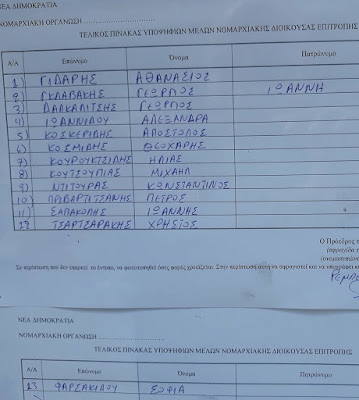 ΝΕΑ ΔΗΜΟΚΡΑΤΙΑ
ΝΟΜΑΡΧΙΑΚΗ ΟΡΓΑΝΩΣΗ
ΤΕΛΙΚΟΣ ΠΙΝΑΚΑΣ ΥΠΟΨΗΦΙΩΝ ΜΕΛΩΝ ΝΟΜΑΡΧΙΑΚΗΣ ΔΙΟΙΚΟΥΣΑΣ ΕΠΙΤΡΟΠΗΣ
Α/Α Επώνυμο Όνομα Πατρώνυμο
1) ΓΙΔΑΡΗΣ ΑΘΑΝΑΣΙΟΣ
2 ΓΚΛΑΒΑΚΗΣ ΓΕΩΡΓΙΟΣ ΙΩΑΝΝΗ
3) ΔΑΛΚΑΛΙΤΣΗΣ ΓΕΩΡΓΙΟΣ
4) ΙΩΑΝΝΙΔΟΥ ΑΛΕΞΑΝΔΡΑ
5) ΚΟΣΚΕΡΙΔΗΣ ΑΠΟΣΤΟΛΟΣ
6) ΚΟΣΜΙΔΗΣ ΘΕΟΧΑΡΗΣ
7) ΚΟΥΡΟΥΚΤΣΙΔΗΣ ΗΛΙΑΣ
8) ΚΟΥΤΣΟΥΠΙΑΣ ΜΙΧΑΗΛ
9) ΝΤΙΤΟΥΡΑΣ ΚΩΝΣΤΑΝΤΙΝΟΣ
10) ΠΡΙΒΑΡΤΙΤΣΑΝΗΣ ΠΕΤΡΟΣ
11) ΣΑΠΑΚΟΛΗΣ ΙΩΑΝΝΗΣ
12 ΤΣΑΡΤΣΑΡΑΚΗΣ ΧΡΗΣΤΟΣ
Ο Πρόεδρος τ
(σφραγίδα τ
(ονοματεπών
Σε περίπτωση που δεν επαρκεί το έντυπο, να φωτοτυπηθεί όσες φορές χρειάζεται. Στην περίπτωση αυτή να σφραγιστεί και να υπογραφεί κά
ΝΕΑ ΔΗΜΟΚΡΑΤΙΑ
ΝΟΜΑΡΧΙΑΚΗ ΟΡΓΑΝΩΣΗ
ΤΕΛΙΚΟΣ ΠΙΝΑΚΑΣ ΥΠΟΨΗΦΙΩΝ ΜΕΛΩΝ ΝΟΜΑΡΧΙΑΚΗΣ ΔΙΟΙΚΟΥΣΑΣ ΕΠΙΤΡΟΠΗΣ
Α/Α Επώνυμο Όνομα Πατρώνυμο
13 ΦΑΡΣΑΚΙΔΟΥ ΣΟΦΙΑ